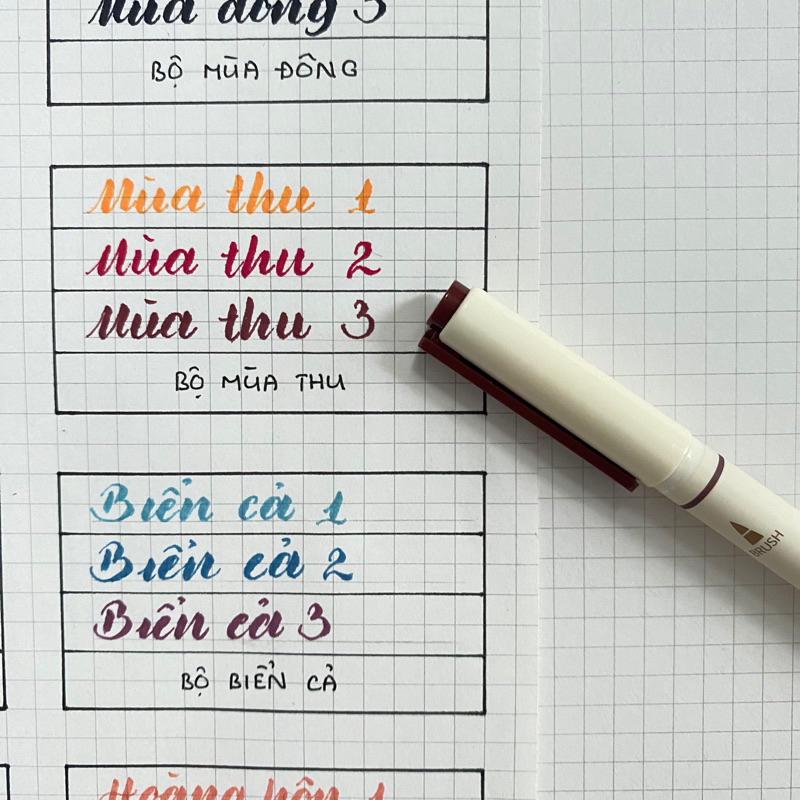 Mùa đông 3
BỘ MÙA ĐÔNG
Mùa thu 1
Mùa thu 2
Mùa thu 3
BỘ MÙA THU
Biển cả 1
Biển cả 2
Biển cả 3
BỘ BIỂN CẢ
Hoàng hôn 1
BRUSH